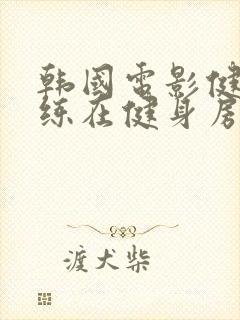 韩國電影健
练在健身房
渡犬柴